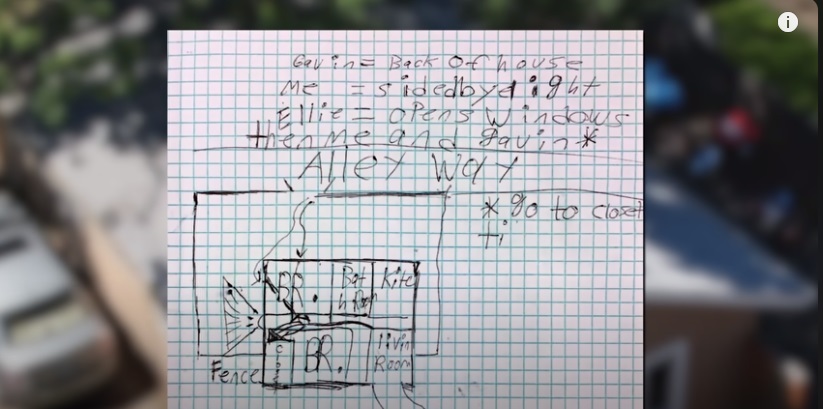 Gavin = Back of house
Me = sidedbyd ight
Ellie = opens windows
then me and gavin*
Alley way
* go to closet
ti
BR.
Bat
h Rom
Kite
Clos
BR.
livin
Room
Fence